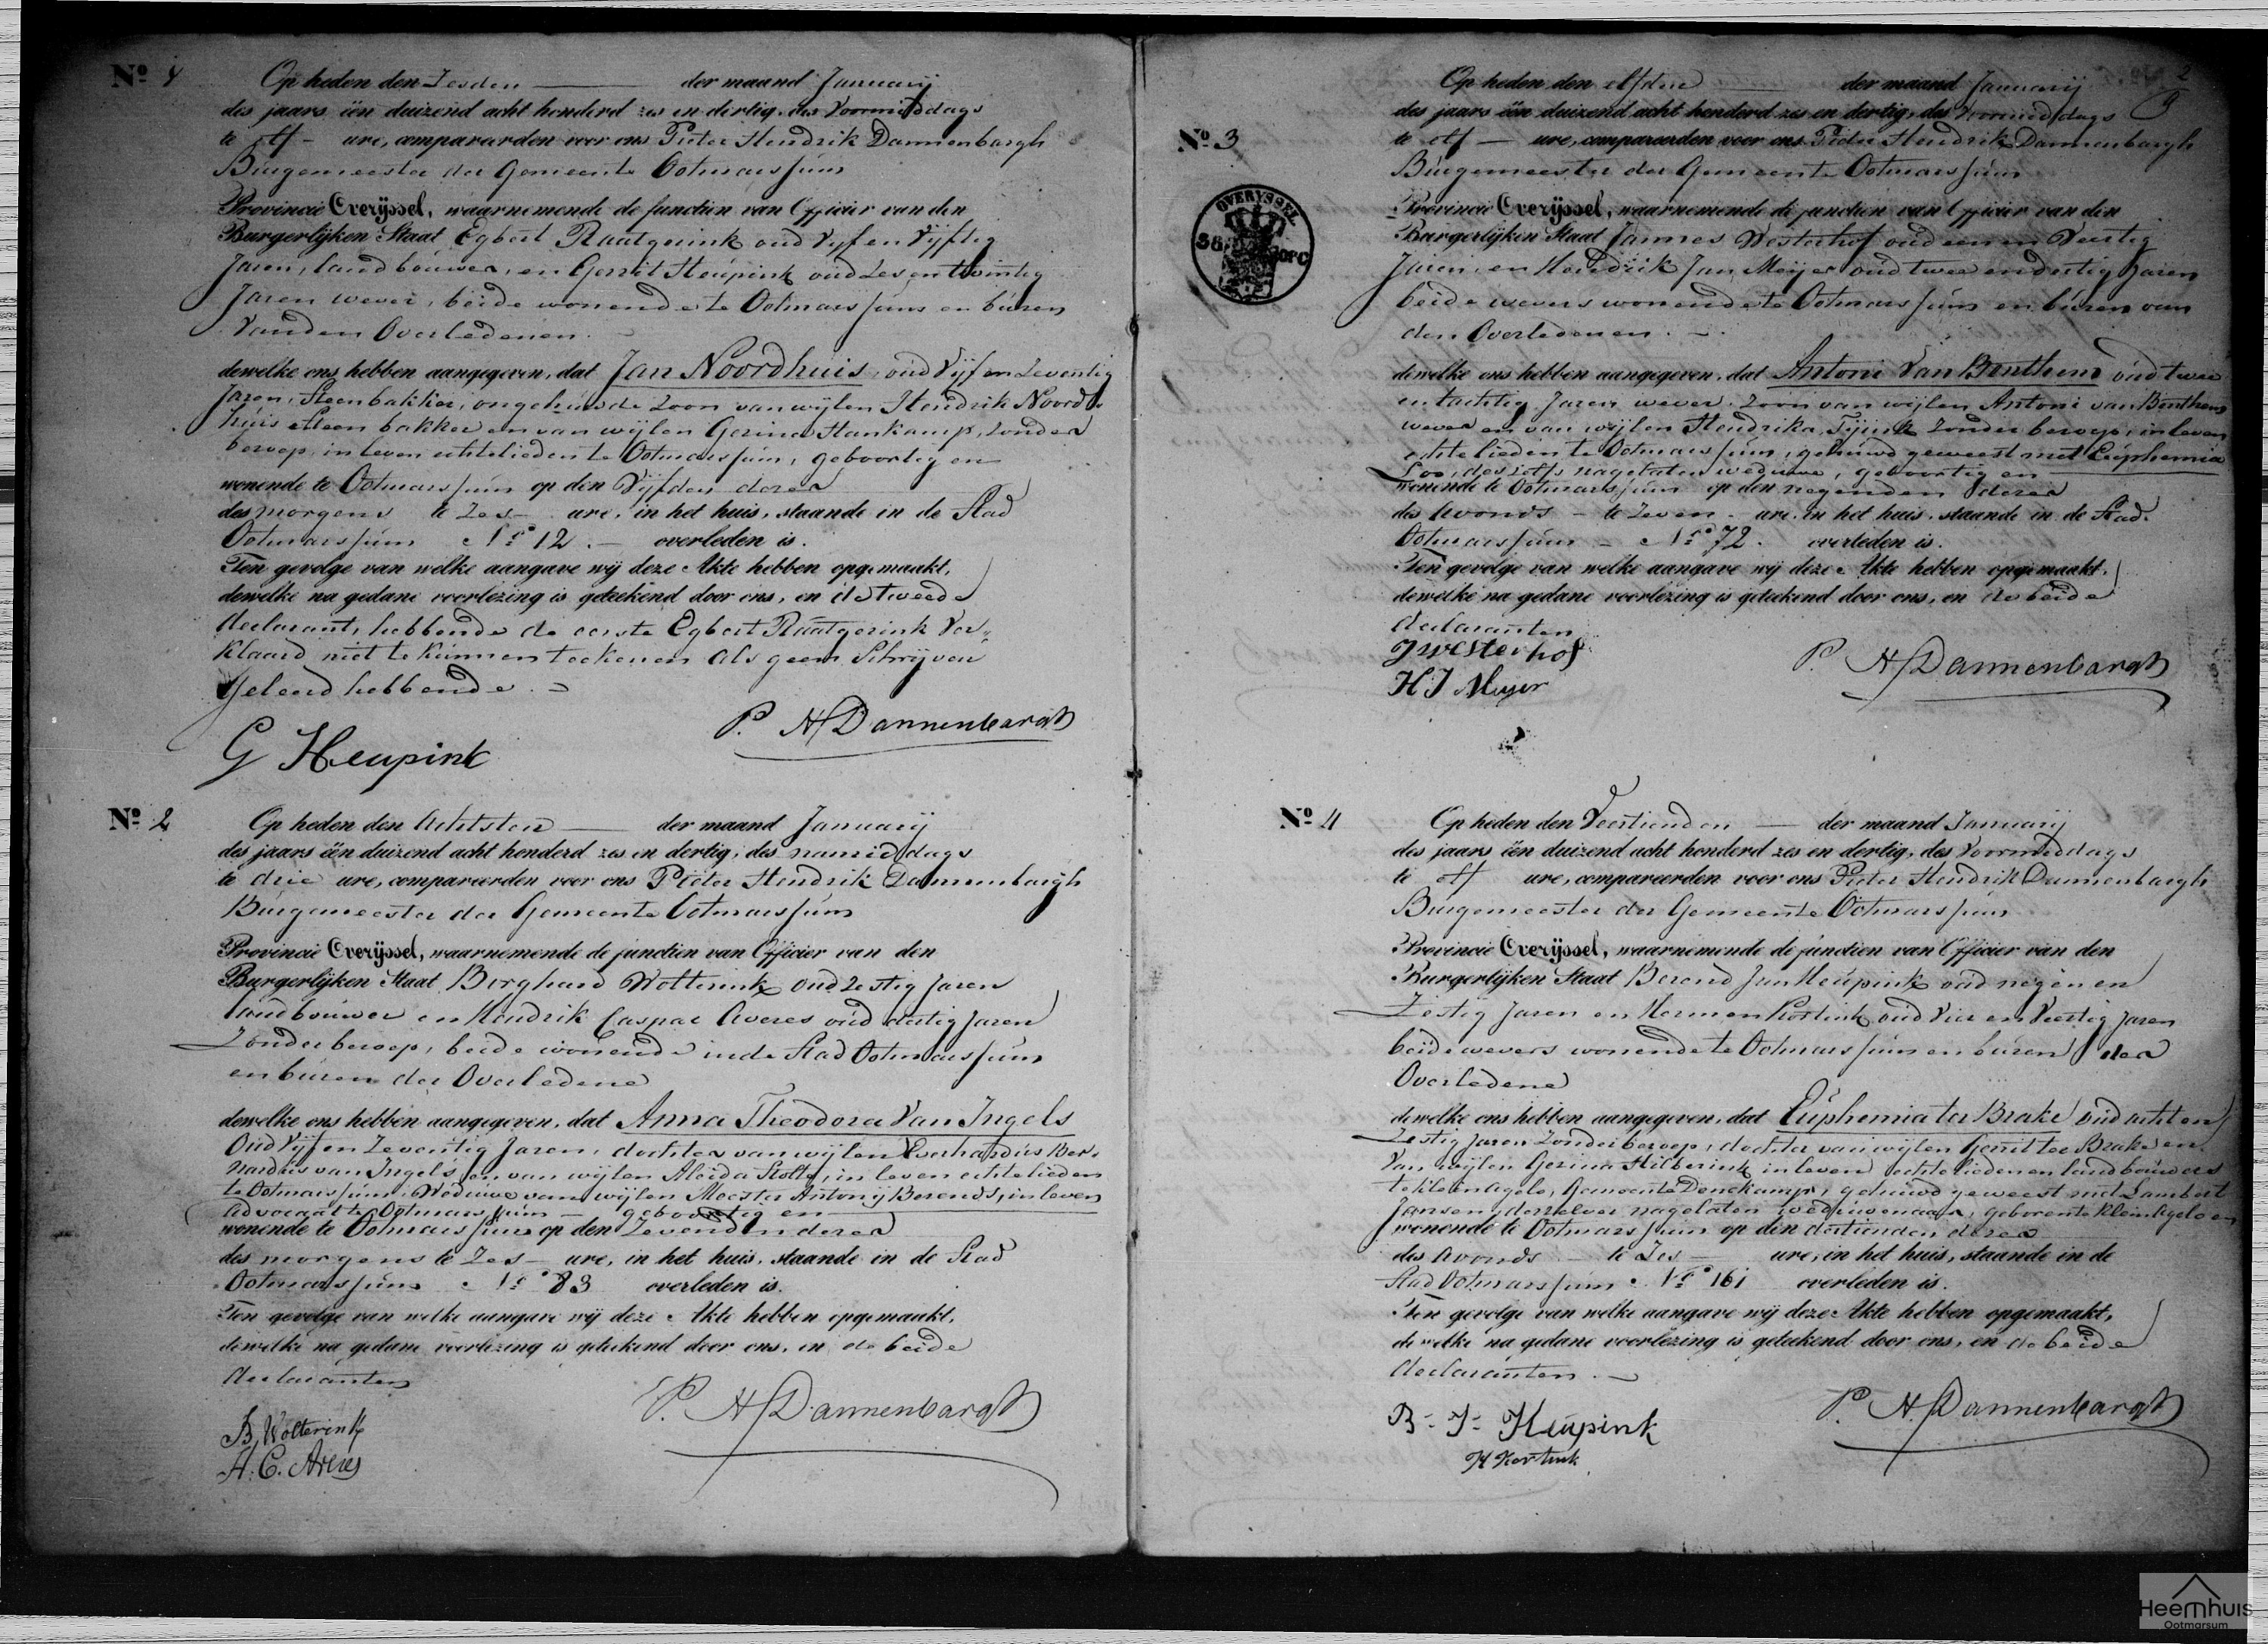 Nº 1
Op heden den Zesden der maand Januarij
des jaars één duizend acht honderd zes en dertig, des Voormiddags
te elf ure, compareerden voor ons Pieter Hendrik Dannenbargh
Burgemeester der Gemeente Ootmarssum
Provincie Overijssel, waarnemende de functien van Officier van den
Burgerlijken Staat Egbert Raatgerink oud Vyf en Vijftig
Jaren, landbouwer, en Gerrit Heupink oud Zes en twintig
Jaren wever, beide wonende te Ootmarssum en buren
van den Overledenen.
dewelke ons hebben aangegeven, dat Jan Noordhuis, oud Vijf en Zeventig
Jaren, Steenbakker, ongehuwde Zoon van wijlen Hendrik Noord-
huis Steenbakker en van wijlen Gezina Hankamp, Zonder
beroep, in leven echtelieden te Ootmarssum, geboortig en
wonende te Ootmarssum op den Vijfden dezer
des morgens te Zes ure, in het huis, staande in de Stad
Ootmarssum Nº 12. overleden is.
Ten gevolge van welke aangave wij deze Akte hebben opgemaakt,
dewelke na gedane voorlezing is geteekend door ons, en de tweede
declarant, hebbende de eerste Egbert Raatgerink Ver-
klaard niet te kunnen teekenen als geen Schrijven
Geleerd hebbende.
P. H Dannenbargh
G Heupink
Nº 2
Op heden den Achtsten der maand Januarij
des jaars één duizend acht honderd zes en dertig, des namiddags
te drie ure, compareerden voor ons Pieter Hendrik Dannenbargh
Burgemeester der Gemeente Ootmarssum
Provincie Overijssel, waarnemende de functien van Officier van den
Burgerlijken Staat Borghard Wolterink oud Zestig Jaren
landbouwer en Hendrik Caspar Averes oud dertig Jaren
Zonder beroep, beide wonende in de Stad Ootmarssum
en buren der Overledene
dewelke ons hebben aangegeven, dat Anna Theodora Van Ingels
Oud Vijf en Zeventig Jaren, dochter van wijlen Everhardus Ber-
nardus van Ingels en van wijlen Aleida Stolte, in leven echtelieden
te Ootmarssum, Weduwe van wijlen Meester Antony Berends, in leven
advocaat te Ootmarssum geboortig en
wonende te Ootmarssum op den Zevenden dezer
des morgens te Zes ure, in het huis, staande in de Stad
Ootmarssum Nº 83 overleden is.
Ten gevolge van welke aangave wij deze Akte hebben opgemaakt,
dewelke na gedane voorlezing is geteekend door ons, en de beide
declaranten
P. H Dannenbargh
B. Wolterink
H. C. Averes
2
Nº 3
OVERYSSEL
Op heden den elfden der maand Januarij
des jaars één duizend acht honderd zes en dertig, des Voormiddags
te elf ure, compareerden voor ons Pieter Hendrik Dannenbargh
Burgemeester der Gemeente Ootmarssum
Provincie Overijssel, waarnemende de functien van Officier van den
Burgerlijken Staat Jannes Westerhof oud een en Veertig
Jaren, en Hendrik Jan Meijer oud twee en dertig Jaren
beide wevers wonende te Ootmarssum en buren van
den Overledenen.
dewelke ons hebben aangegeven, dat Antoni Van Benthem oud twee
en tachtig Jaren wever, Zoon van wijlen Antoni van Benthem
wever en van wijlen Hendrika Tijink Zonder beroep, in leven
echtelieden te Ootmarssum, gehuwd geweest met Euphemia
Loo, deszelfs nagelaten weduwe, geboortig en
wonende te Ootmarssum op den negenden dezer
des Avonds te Zeven ure, in het huis, staande in de Stad
Ootmarssum Nº 72. overleden is.
Ten gevolge van welke aangave wij deze Akte hebben opgemaakt,
dewelke na gedane voorlezing is geteekend door ons, en de beide
declaranten
J Westerhof
P. H Dannenbargh
H J Meyer
Nº 4
Op heden den Veertienden der maand Januarij
des jaars één duizend acht honderd zes en dertig, des Voormiddags
te elf ure, compareerden voor ons Pieter Hendrik Dannenbargh
Burgemeester der Gemeente Ootmarssum
Provincie Overijssel, waarnemende de functien van Officier van den
Burgerlijken Staat Berend Jan Heupink oud negen en
Zestig Jaren en Hermen Kortink oud Vier en Veertig Jaren
beide wevers wonende te Ootmarssum en buren der
Overledene
dewelke ons hebben aangegeven, dat Euphemia ter Brake oud acht en
Zestig Jaren Zonder beroep, dochter van wijlen Gerrit ter Brake en
Van wijlen Gezina Hilberink in leven echtelieden en landbouwers
te Klein Agelo, Gemeente Denekamp, gehuwd geweest met Lambert
Jansen, derzelver nagelaten weduwenaar, geboren te Klein Agelo en
wonende te Ootmarssum op den dertienden dezer
des Avonds te Zes ure, in het huis, staande in de
Stad Ootmarssum Nº 161 overleden is.
Ten gevolge van welke aangave wij deze Akte hebben opgemaakt,
dewelke na gedane voorlezing is geteekend door ons, en de beide
declaranten.
P. H. Dannenbargh
B. J. Heupink
H Kortink
Heemhuis
Ootmarsum